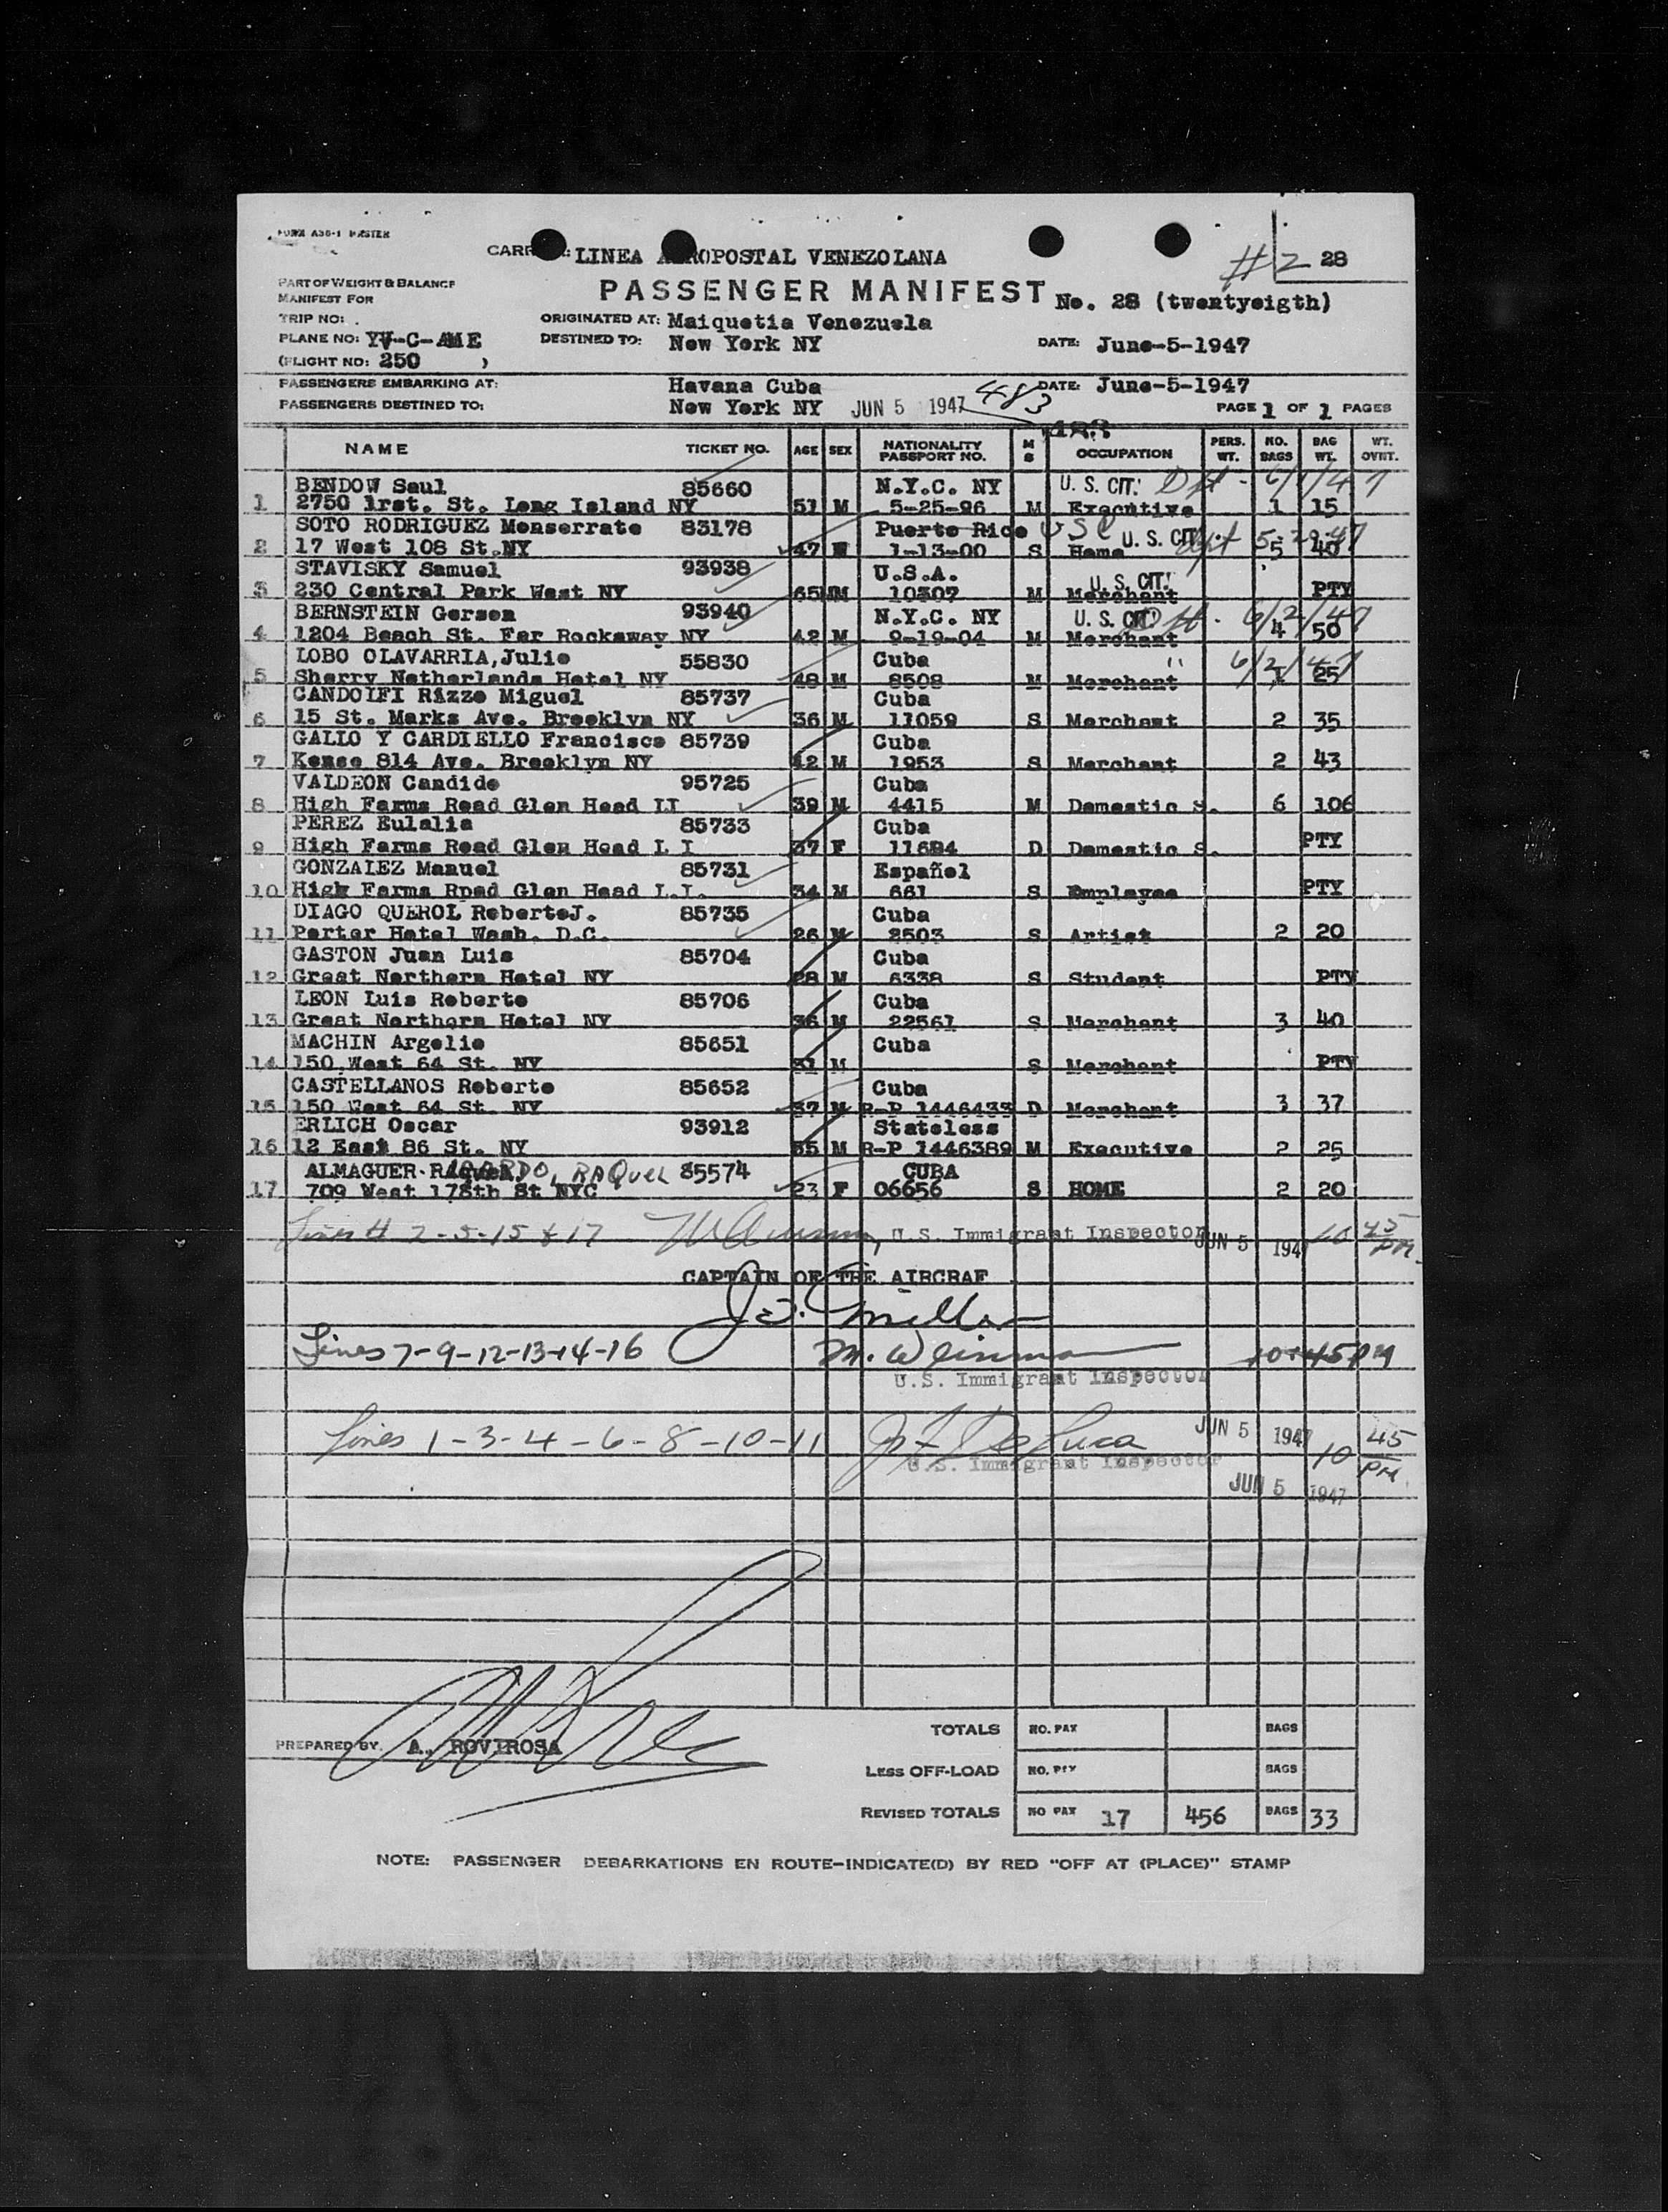 FORM A36-1 MASTER
CARRIER: LINEA AEROPOSTAL VENEZOLANA
#2 28
PART OF WEIGHT & BALANCE
MANIFEST FOR
PASSENGER MANIFEST No. 28 (twentyeigth)
TRIP NO:
ORIGINATED AT: Maiquetia Venezuela
PLANE NO: YV-C-AME
DESTINED TO: New York NY
DATE: June-5-1947
(FLIGHT NO: 250 )
PASSENGERS EMBARKING AT: Havana Cuba DATE: June-5-1947
PASSENGERS DESTINED TO: New York NY JUN 5 1947 483 PAGE 1 OF 1 PAGES
483
NAME TICKET NO. AGE SEX NATIONALITY PASSPORT NO. M S OCCUPATION PERS. WT. NO. BAGS BAG WT. WT. OVNT.
BENDOW Saul 85660 N.Y.C. NY U. S. CIT. Dpt - 6/1/47
1 2750 1rst. St. Long Island NY 51 M 5-25-96 M Executive 1 15
SOTO RODRIGUEZ Monserrate 83178 Puerto Rico USC U. S. CIT. Dpt 5-29-47
2 17 West 108 St.NY 47 1-13-00 S Home 5 40
STAVISKY Samuel 93938 U.S.A. U. S. CIT.
3 230 Central Park West NY 65 M 10307 M Merchant PTY
BERNSTEIN Gerson 93940 N.Y.C. NY U. S. CIT. Dpt. 6/2/47
4 1204 Beach St. Far Rockaway NY 42 M 9-19-04 M Merchant 4 50
LOBO OLAVARRIA,Julio 55830 Cuba " 6/2/47
5 Sherry Netherlands Hotel NY 48 M 8508 M Merchant 1 25
CANDOLFI Rizzo Miguel 85737 Cuba
6 15 St. Marks Ave. Brooklyn NY 36 M 11059 S Merchant 2 35
GALLO Y CARDIELLO Francisco 85739 Cuba
7 Kense 814 Ave. Brooklyn NY 42 M 1953 S Merchant 2 43
VALDEON Candido 95725 Cuba
8 High Farms Road Glen Head LI 39 M 4415 M Domestic S. 6 106
PEREZ Eulalia 85733 Cuba
9 High Farms Road Glen Head L I 37 F 11684 D Domestic S. PTY
GONZALEZ Manuel 85731 Español
10 High Farms Rpad Glen Head L.I. 34 M 661 S Employee PTY
DIAGO QUEROL RobertoJ. 85735 Cuba
11 Porter Hotel Wash. D.C. 26 M 2503 S Artist 2 20
GASTON Juan Luis 85704 Cuba
12 Great Northern Hotel NY 28 M 6338 S Student PTY
LEON Luis Roberto 85706 Cuba
13 Great Northern Hotel NY 36 M 22561 S Merchant 3 40
MACHIN Argelio 85651 Cuba
14 150 West 64 St. NY 31 M S Merchant PTY
CASTELLANOS Roberto 85652 Cuba
15 150 West 64 St. NY 37 M R-P 1446433 D Merchant 3 37
ERLICH Oscar 93912 Stateless
16 12 East 86 St. NY 55 M R-P 1446389 M Executive 2 25
ALMAGUER RAQUEL 85574 CUBA
17 709 West 178th St NYC 23 F 06656 S HOME 2 20
Lines # 2-5-15 & 17 U.S. Immigrant Inspector JUN 5 1947 10 45 PM
CAPTAIN OF THE AIRCRAF
J. D. Miller
Lines 7-9-12-13-14-16 M. Weinman 10:45 PM
U.S. Immigrant Inspector
Lines 1-3-4-6-8-10-11 De Luca JUN 5 1947 10 45 PM
U.S. Immigrant Inspector
JUN 5 1947
TOTALS NO. PAX BAGS
PREPARED BY A. ROVIROSA
LESS OFF-LOAD NO. PTY BAGS
REVISED TOTALS NO PAX 17 456 BAGS 33
NOTE: PASSENGER DEBARKATIONS EN ROUTE-INDICATE(D) BY RED "OFF AT (PLACE)" STAMP